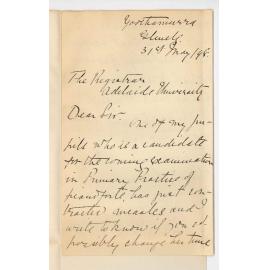 31st May/98.
The Registrar
Adelaide University
Dear Sir.
One of my pu-
pils who is a candidate
for the coming examination
in Primary Practice of
pianoforte, has just con-
tracted measles and I
write to know if you cd
possibly change her time